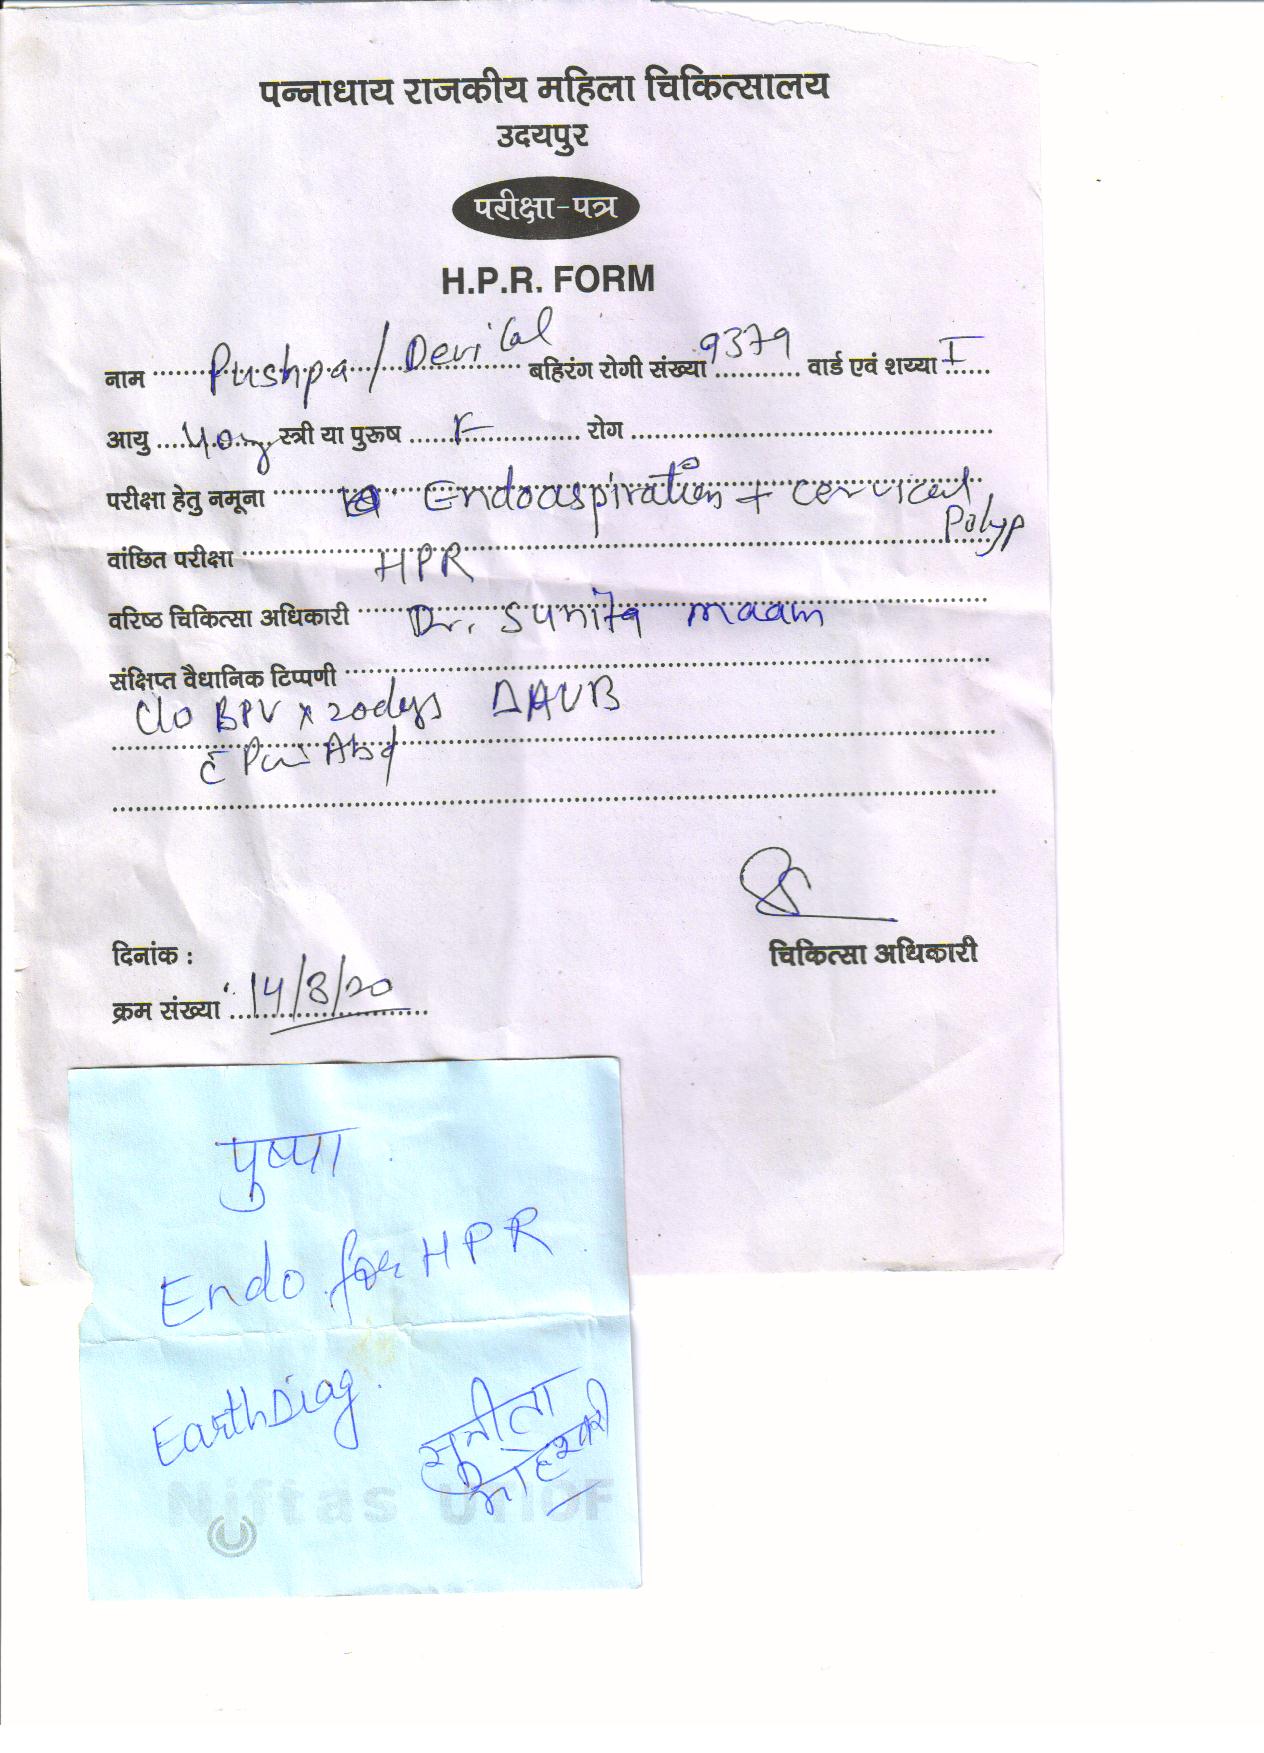 पन्नाधाय राजकीय महिला चिकित्सालय
उदयपुर
परीक्षा-पत्र
H.P.R. FORM
नाम Pushpa / Devilal बहिरंग रोगी संख्या 9379 वार्ड एवं शय्या I
आयु 40y स्त्री या पुरूष F रोग
परीक्षा हेतु नमूना Endoaspiration + cervical
Polyp
वांछित परीक्षा HPR
वरिष्ठ चिकित्सा अधिकारी Dr. Sunita maam
संक्षिप्त वैधानिक टिप्पणी
C/o BPV x 20days AUB
c̄ Pain Abd
चिकित्सा अधिकारी
दिनांक :
क्रम संख्या 14/8/20
पुष्पा
Endo for HPR
EarthDiag.
सुनीता
माहेश्वरी
Niftas